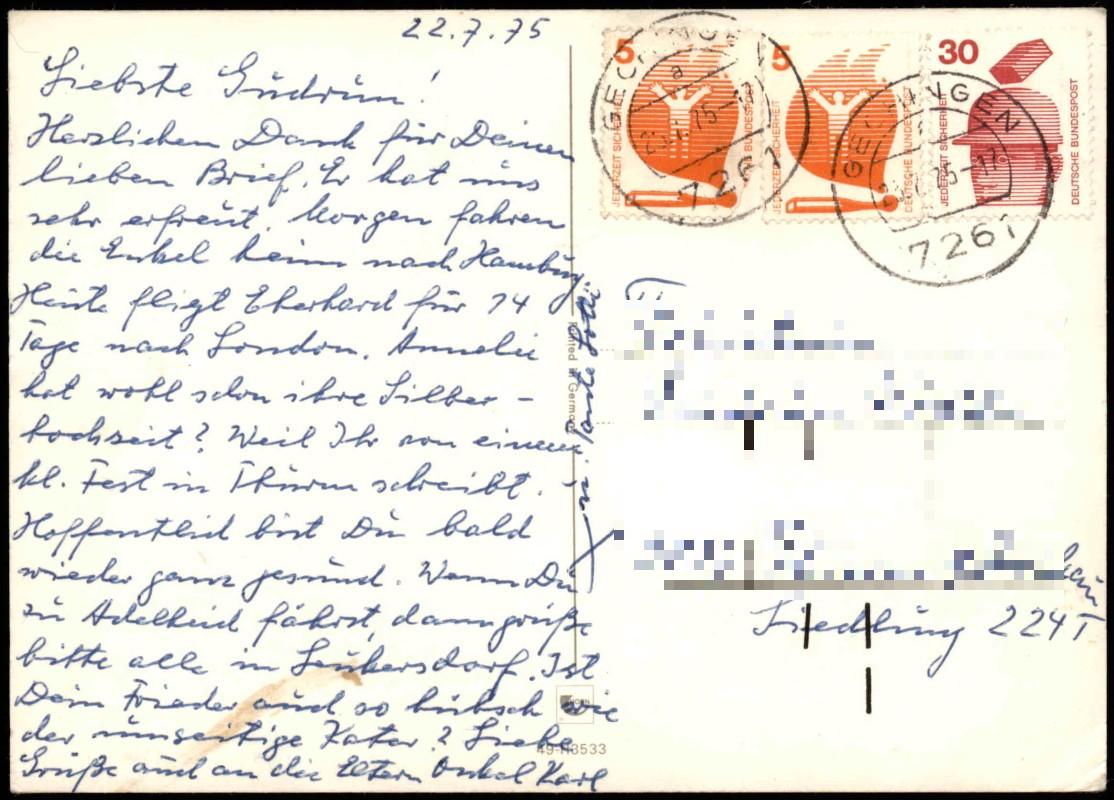 22.7.75
Liebste Gudrun!
Herzlichen Dank für Deinen
lieben Brief. Er hat uns
sehr erfreut. Morgen fahren
die Enkel heim nach Hamburg.
Heute fliegt Eberhard für 14
Tage nach London. Annelie
hat wohl schon ihre Silber-
hochzeit? Weil Ihr von einem
kl. Fest in Thurm schreibt.
Hoffentlich bist Du bald
wieder ganz gesund. Wenn Du
zu Adelheid fährst, dann grüße
bitte alle in Leukersdorf. Ist
Dein Frieder auch so hübsch wie
der umseitige Kater? Liebe
Grüße auch an die Eltern Onkel Karl
u. Tante
Printed in Germany
49-H3533
5
JEDERZEIT SICHERHEIT
DEUTSCHE BUNDESPOST
5
JEDERZEIT SICHERHEIT
DEUTSCHE BUNDESPOST
30
JEDERZEIT SICHERHEIT
DEUTSCHE BUNDESPOST
GECHINGEN
7261
GECHINGEN
7261
Siedlung 224T